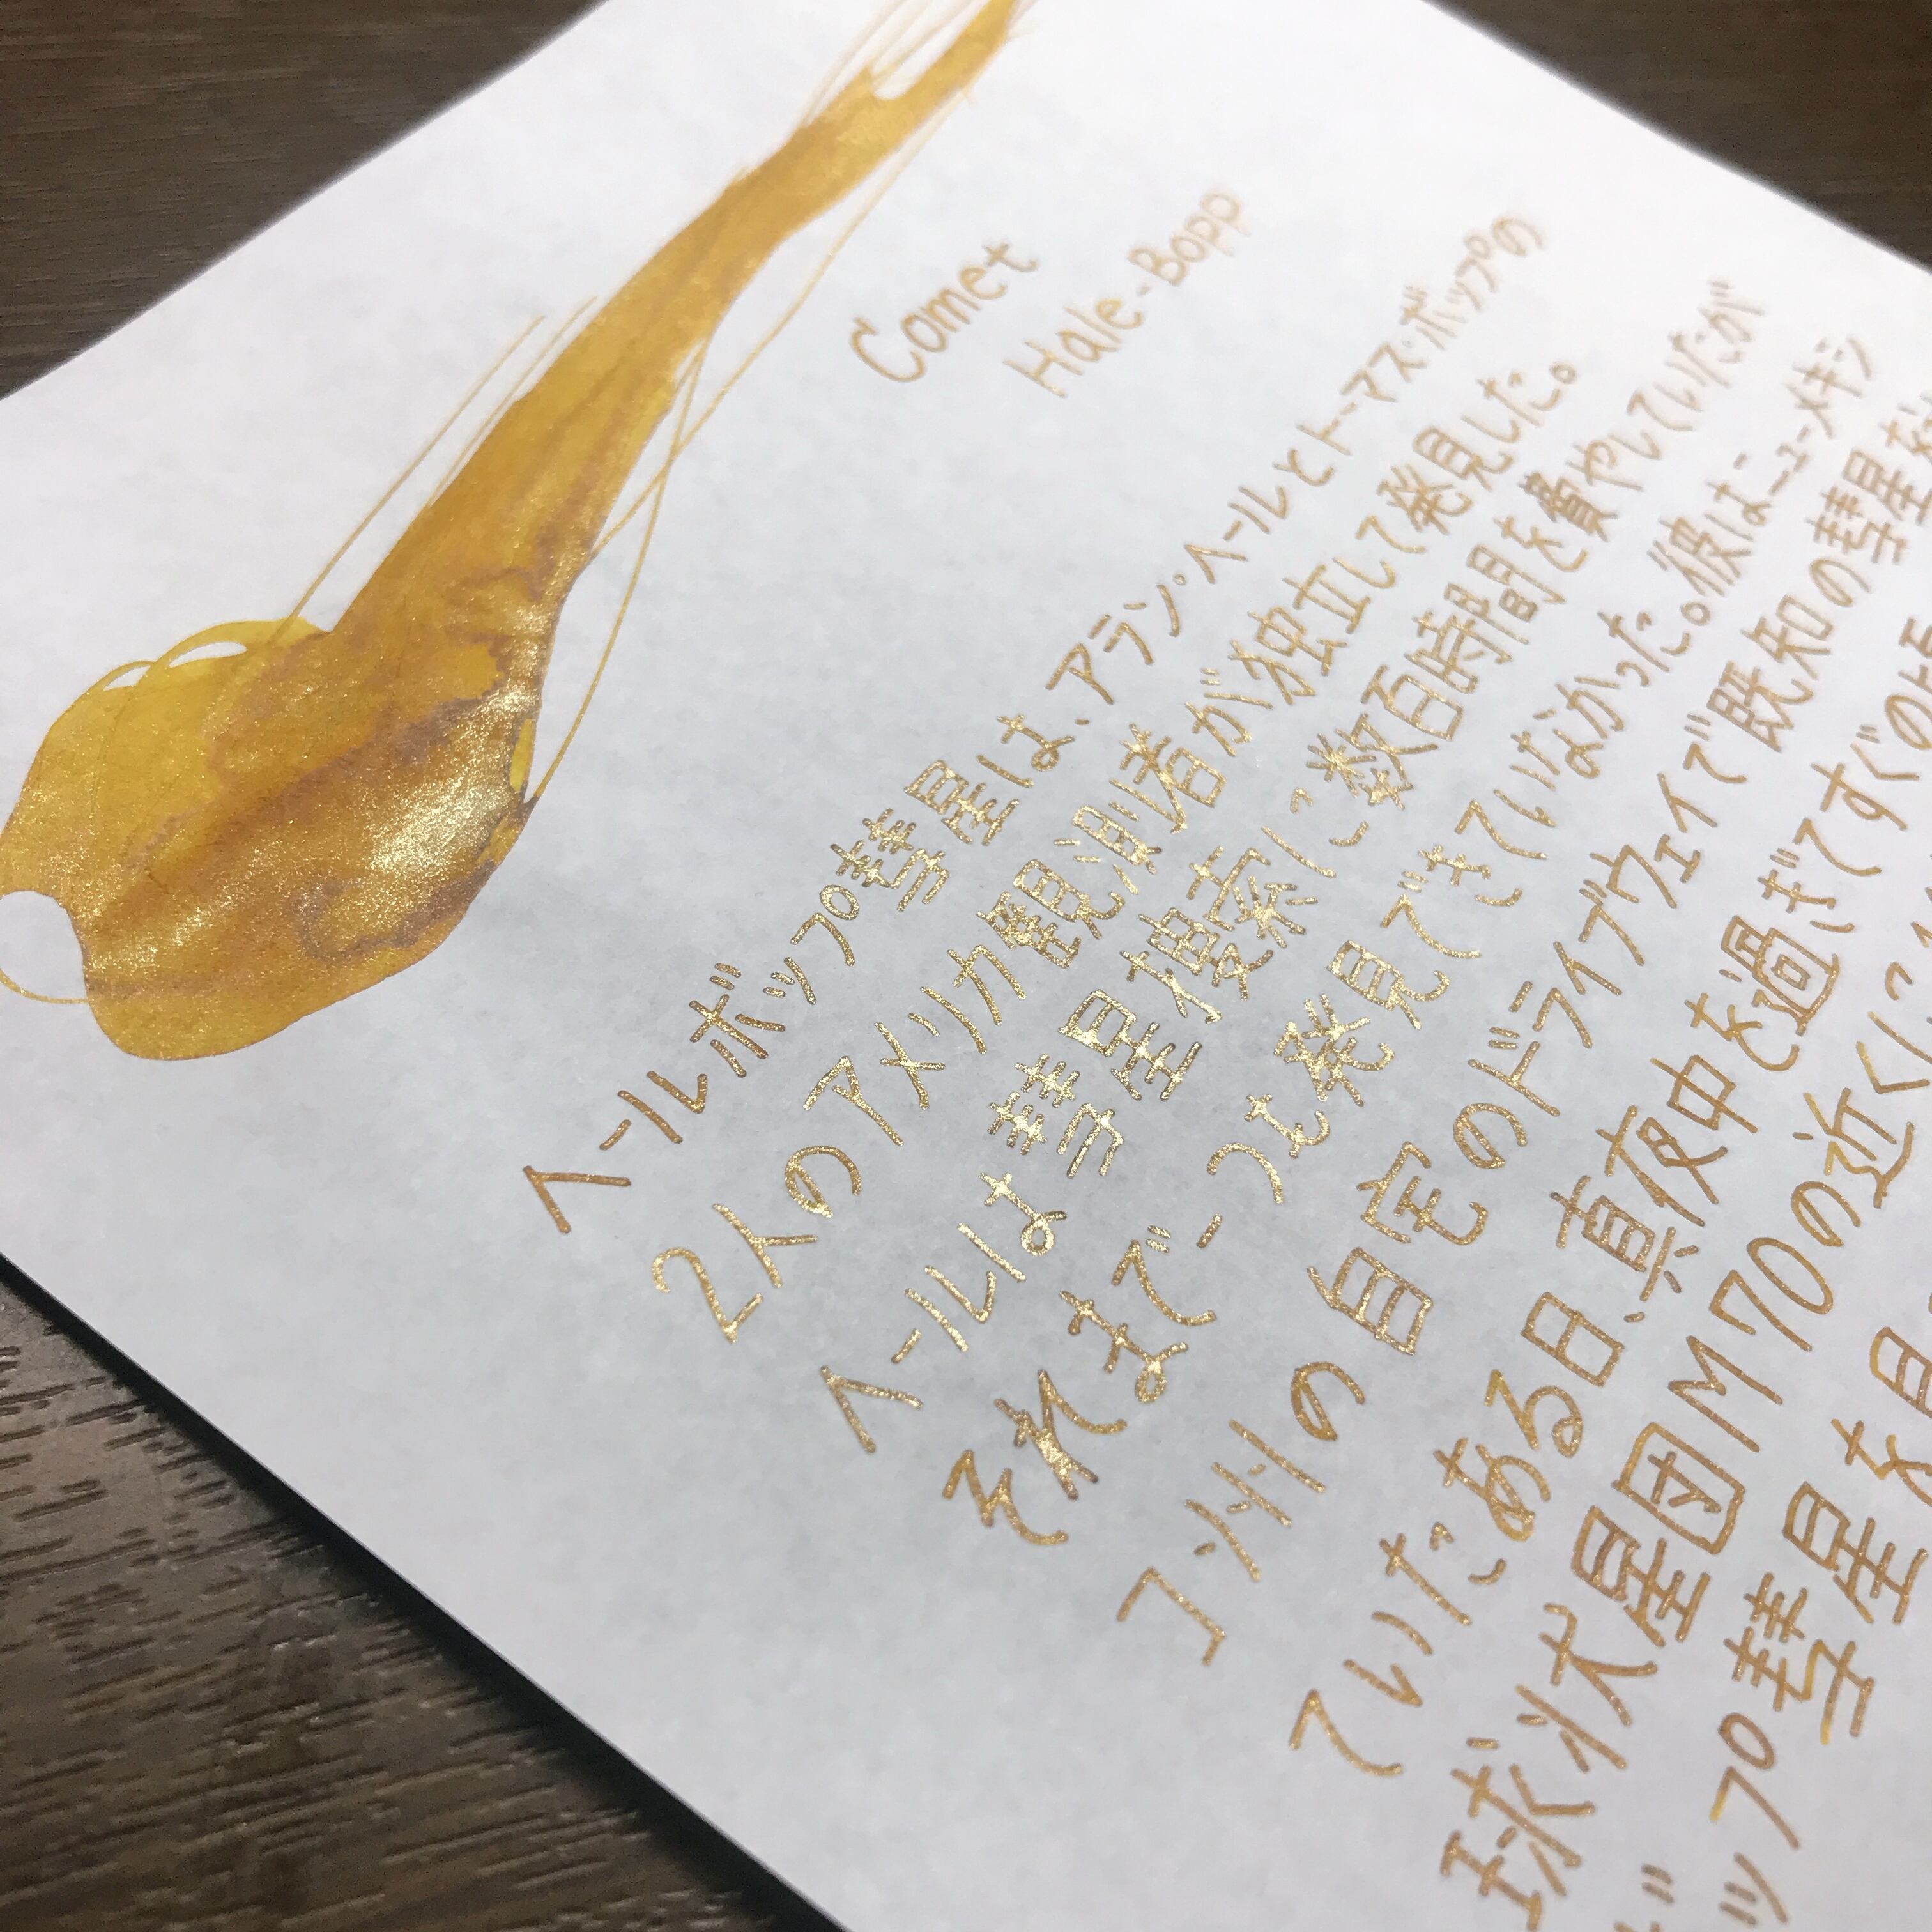 Comet
Hale-Bopp
ヘールボップ彗星は、アラン・ヘールとトーマス・ボップの
2人のアメリカ人観測者が独立して発見した。
ヘールは彗星捜索に数百時間を費やしていたが
それまで一つも発見できていなかった。彼はニューメキシ
コ州の自宅のドライブウェイで既知の彗星を
ていたある日、真夜中を過ぎてすぐの
球状星団M70の近くに
ップ彗星を